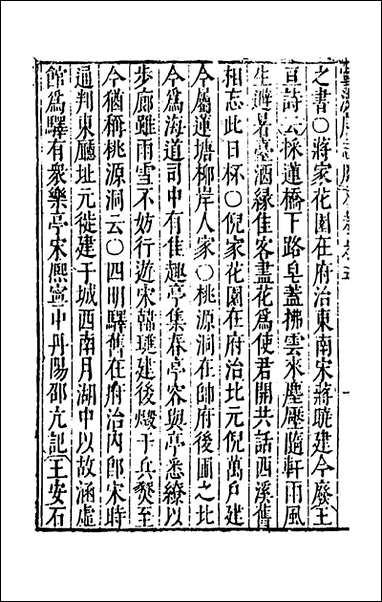 之書〇蔣家花園在府治東南宋蔣曉建今廢王
亘詩云採蓮橋下路皂蓋拂雲來塵壓隨軒雨風
生避暑臺酒緣佳客盡花為使君開共話西溪舊
相忘此日杯〇倪家花園在府治北元倪萬戶建
今屬蓮塘柳岸人家〇桃源洞在帥府後圃之北
今為海道司中有佳趣亭集春亭容與亭悉繚以
步廊雖雨雪不妨行遊宋韓璡建後燬于兵燹至
今猶稱桃源洞云〇四明驛舊在府治內郎宋時
通判東廳址元徙建于城西南月湖中以故涵虛
館為驛有眾樂亭宋熙寧中丹陽邵亢記王安石